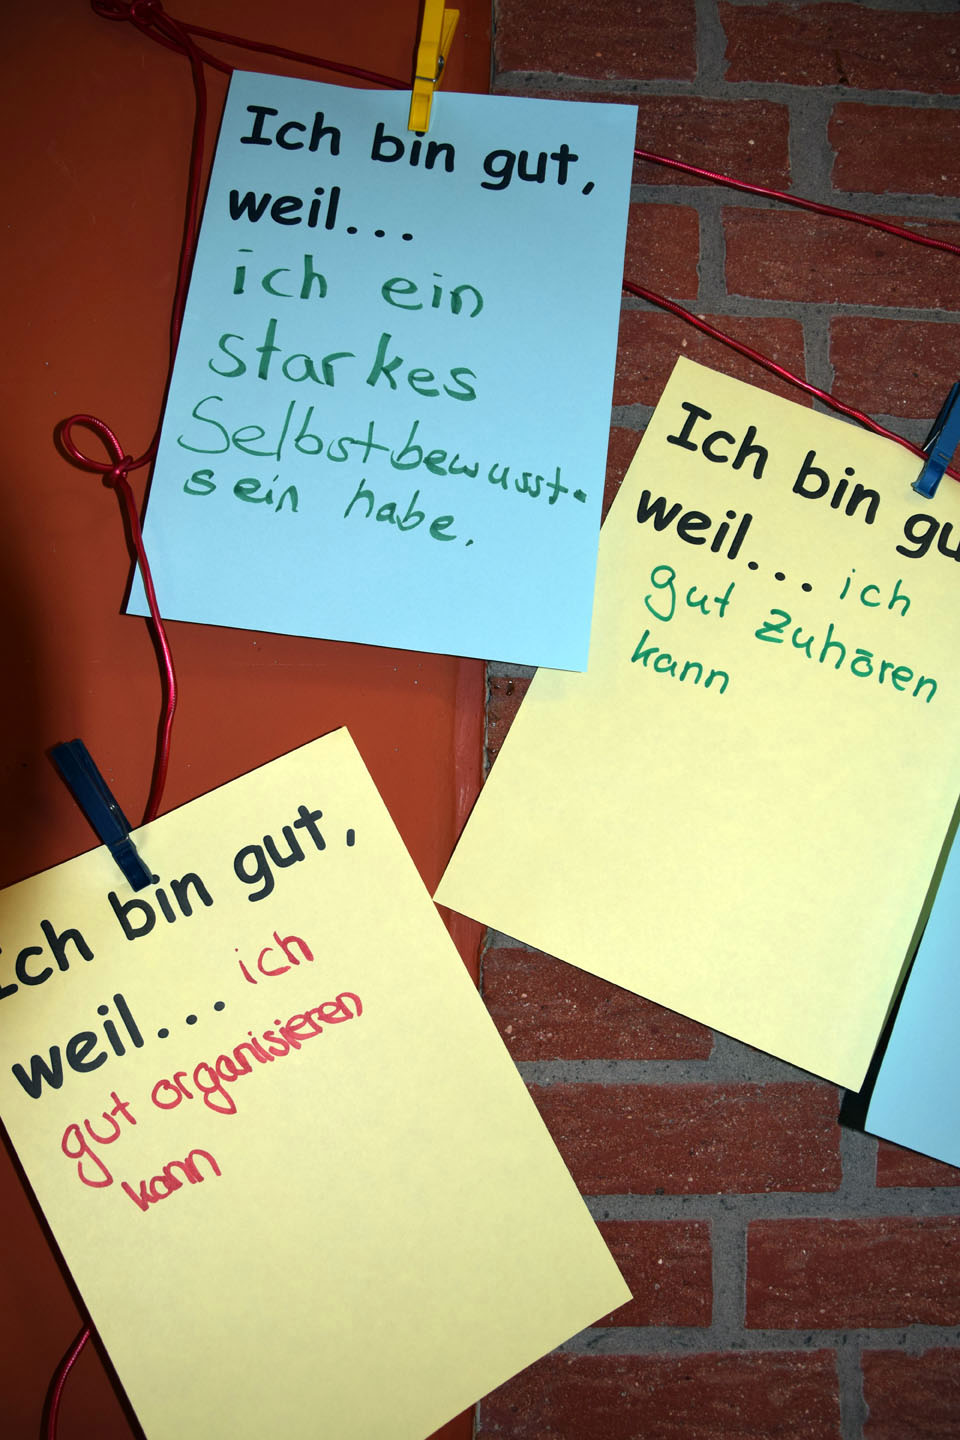 Ich bin gut,
weil...
ich ein
starkes
Selbstbewusst-
sein habe.
Ich bin gu
weil... ich
gut zuhören
kann
Ich bin gut,
weil... ich
gut organisieren
kann